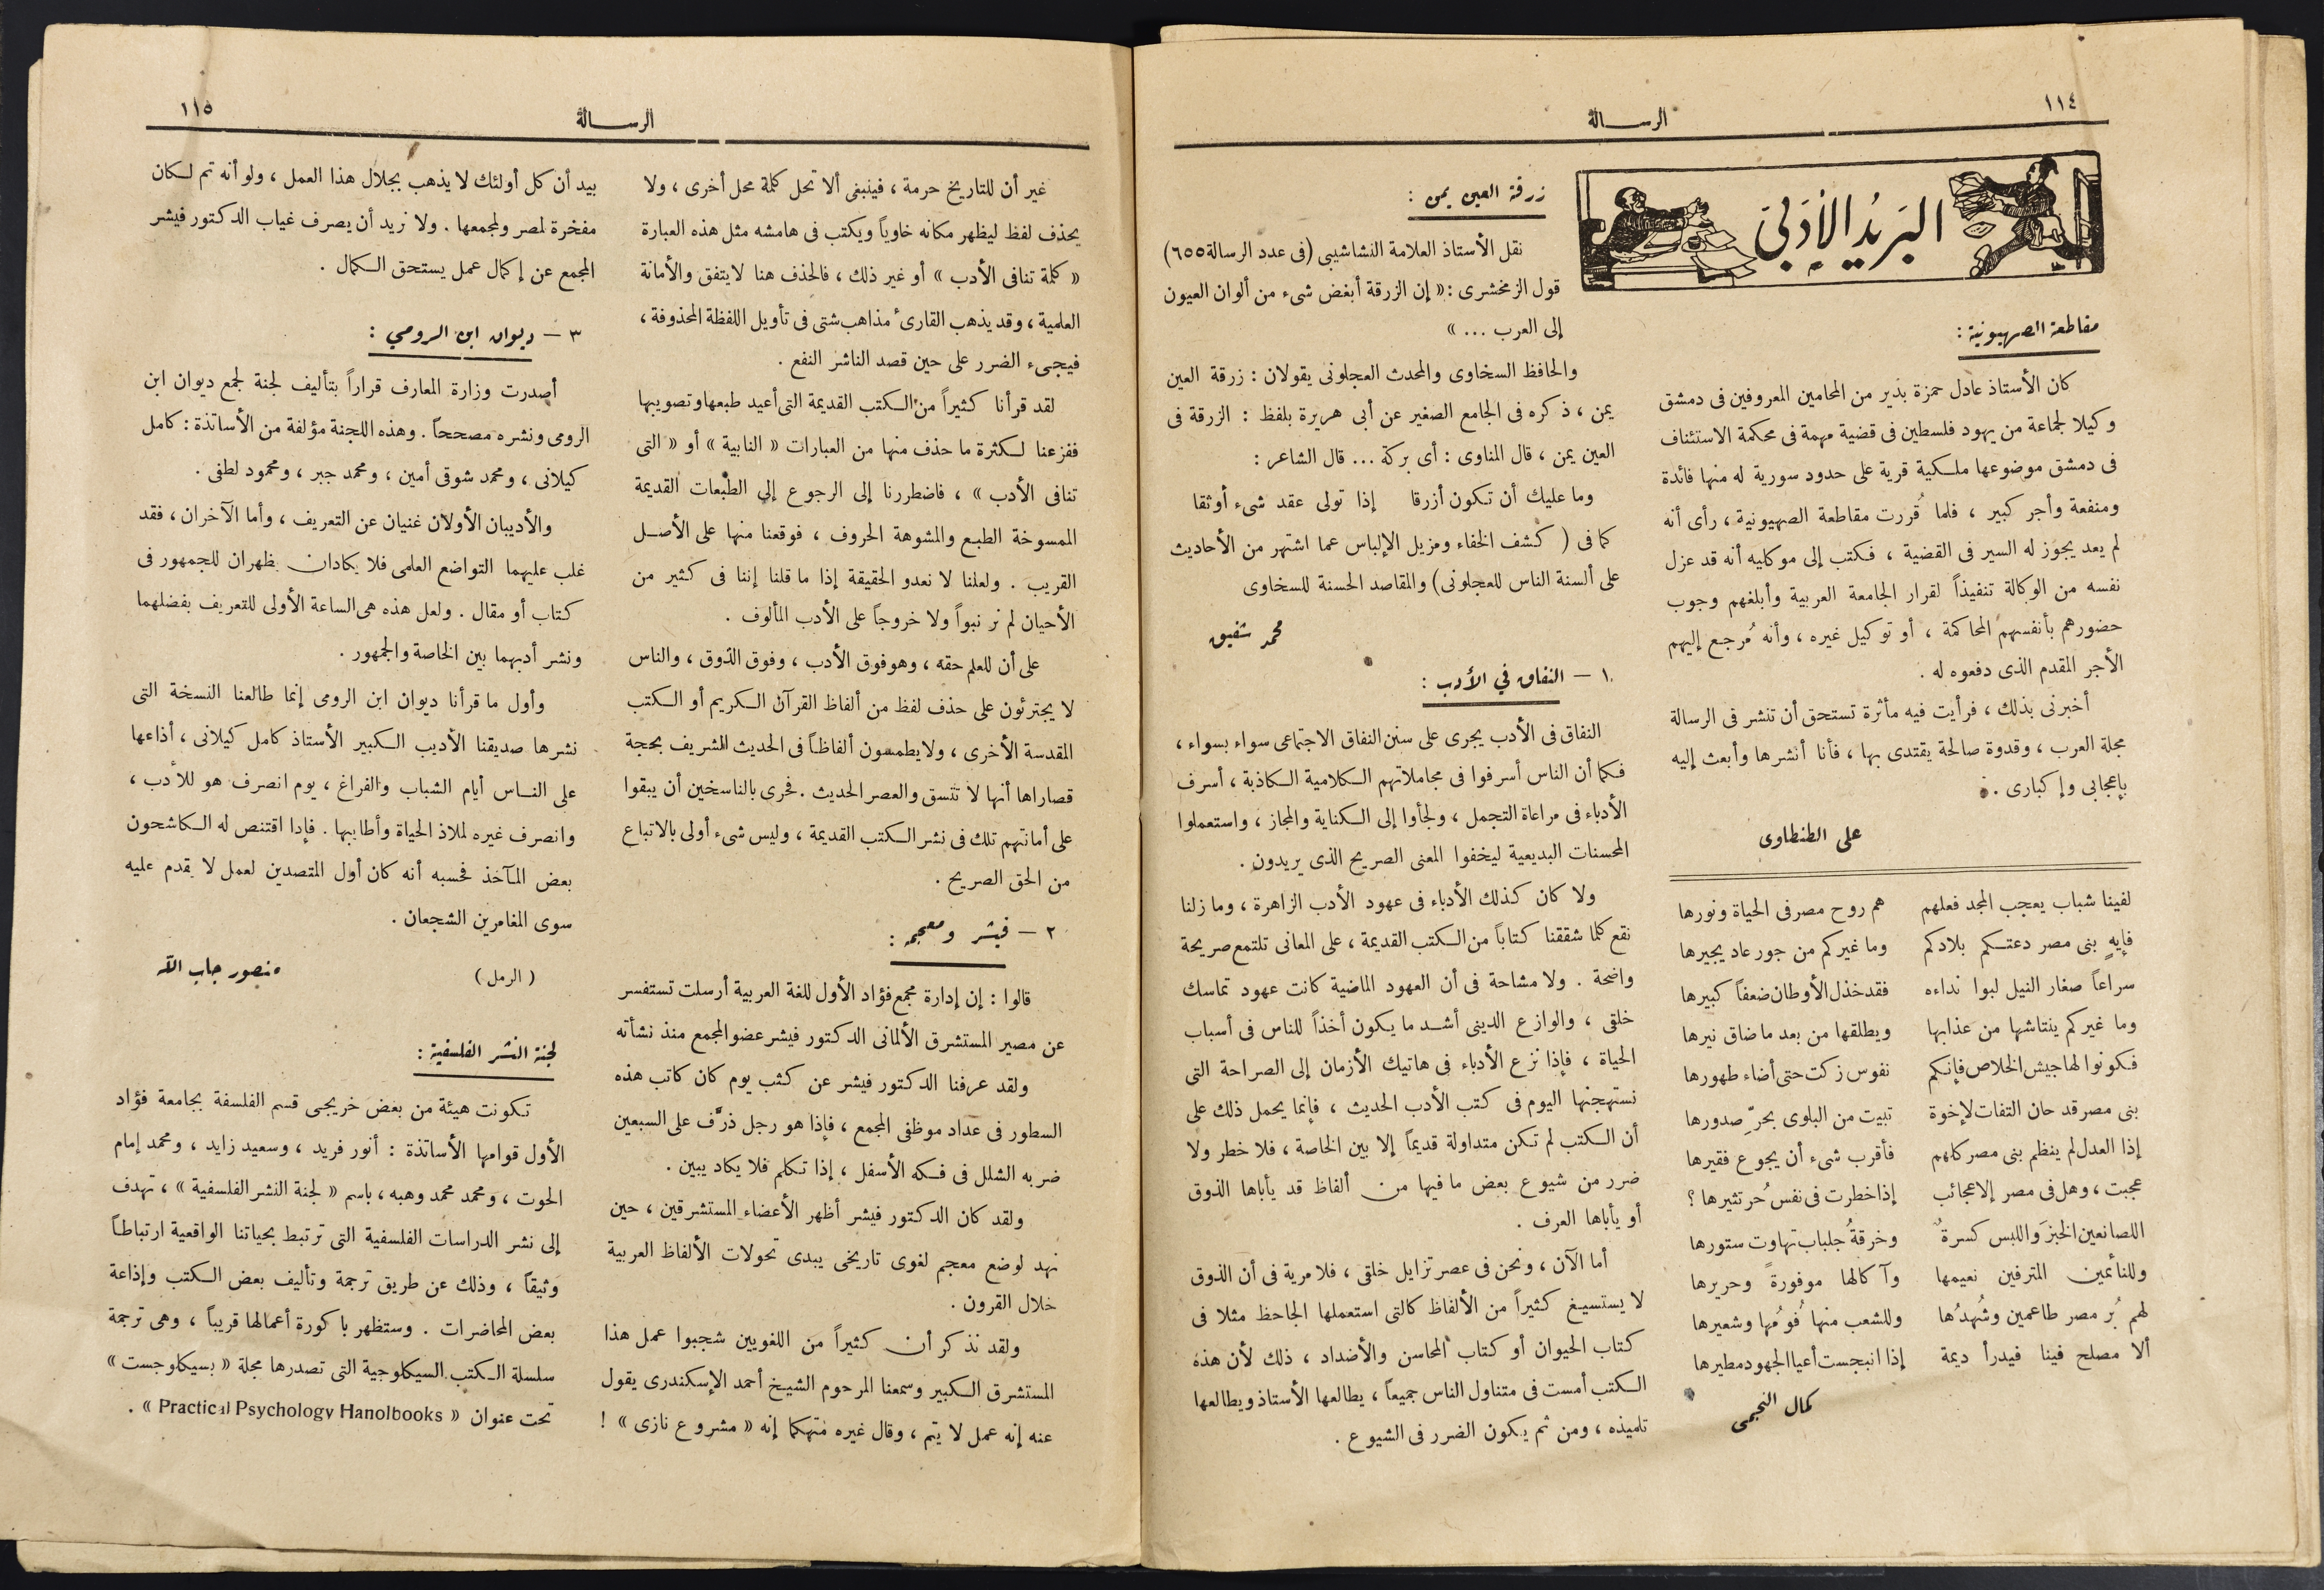 ١١٤
الرسالة
البريد الأدبي
مقاطعة الصهيونية :
كان الأستاذ عادل حمزة بذير من المحامين المعروفين فى دمشق
وكيلا لجماعة من يهود فلسطين فى قضية مهمة فى محكمة الاستئناف
فى دمشق موضوعها ملكية قرية على حدود سورية له منها فائدة
ومنفعة وأجر كبير ، فلما قُررت مقاطعة الصهيونية ، رأى أنه
لم يعد يجوز له السير فى القضية ، فكتب إلى موكليه أنه قد عزل
نفسه من الوكالة تنفيذاً لقرار الجامعة العربية وأبلغهم وجوب
حضورهم بأنفسهم المحاكمة ، أو توكيل غيره ، وأنه مُرجع إليهم
الأجر المقدم الذى دفعوه له .
أخبرنى بذلك ، فرأيت فيه مأثرة تستحق أن تنشر فى الرسالة
مجلة العرب ، وقدوة صالحة يقتدى بها ، فأنا أنشرها وأبعث إليه
بإعجابى وإكبارى .
على الطنطاوى
لفينا شباب يعجب المجد فعلهم هم روح مصر فى الحياة ونورها
فإيهٍ بنى مصر دعتكم بلادكم وما غيركم من جور عاد يجيرها
سراعاً صغار النيل لبوا نداءه فقد خذل الأوطان ضعفاً كبيرها
وما غيركم ينتاشها من عذابها ويطلقها من بعد ما ضاق نيرها
فكونوا لها جيش الخلاص فإنكم نفوس زكت حتى أضاء طهورها
بنى مصر قد حان التفات لإخوة تبيت من البلوى بحرّ صدورها
إذا العدل لم ينظم بنى مصر كلهم فأقرب شىء أن يجوع فقيرها
عجبت ، وهل فى مصر إلا عجائب إذا خطرت فى نفس حُر تثيرها ؟
اللصانعين الخبزَ واللبس كسرةٌ وخرقةُ جلباب تهاوت ستورها
وللنائمين المترفين نعيمها وآكالها موفورةً وحريرها
لهم بُر مصر طاعمين وشُهدُها وللشعب منها فُومُها وشعيرها
ألا مصلح فينا فيدرأ ديمة إذا انبجست أعيا الجهود مطيرها
كمال النجمى
زرقة العين يمن :
نقل الأستاذ العلامة النشاشيبى (فى عدد الرسالة ٦٥٥)
قول الزمخشرى : « إن الزرقة أبغض شىء من ألوان العيون
إلى العرب ... »
والحافظ السخاوى والمحدث العجلونى يقولان : زرقة العين
يمن ، ذكره فى الجامع الصغير عن أبى هريرة بلفظ : الزرقة فى
العين يمن ، قال المناوى : أى بركة ... قال الشاعر :
وما عليك أن تكون أزرقا إذا تولى عقد شىء أوثقا
كما فى ( كشف الخفاء ومزيل الإلباس عما اشتهر من الأحاديث
على ألسنة الناس للعجلونى) والمقاصد الحسنة للسخاوى
محمد شفيق
١ — النفاق في الأدب :
النفاق فى الأدب يجرى على سنن النفاق الاجتماعى سواء بسواء ،
فكما أن الناس أسرفوا فى مجاملاتهم الكلامية الكاذبة ، أسرف
الأدباء فى مراعاة التجمل ، ولجأوا إلى الكناية والمجاز ، واستعملوا
المحسنات البديعية ليخفوا المعنى الصريح الذى يريدون .
ولا كان كذلك الأدباء فى عهود الأدب الزاهرة ، وما زلنا
نقع كلما شققنا كتاباً من الكتب القديمة ، على المعانى تلتمع صريحة
واضحة . ولا مشاحة فى أن العهود الماضية كانت عهود تماسك
خلقى ، والوازع الدينى أشد ما يكون أخذاً للناس فى أسباب
الحياة ، فإذا نزع الأدباء فى هاتيك الأزمان إلى الصراحة التى
نستهجنها اليوم فى كتب الأدب الحديث ، فإنما يحمل ذلك على
أن الكتب لم تكن متداولة قديماً إلا بين الخاصة ، فلا خطر ولا
ضرر من شيوع بعض ما فيها من ألفاظ قد يأباها الذوق
أو يأباها العرف .
أما الآن ، ونحن فى عصر تزايل خلقى ، فلا مرية فى أن الذوق
لا يستسيغ كثيراً من الألفاظ كالتى استعملها الجاحظ مثلا فى
كتاب الحيوان أو كتاب المحاسن والأضداد ، ذلك لأن هذه
الكتب أمست فى متناول الناس جميعاً ، يطالعها الأستاذ ويطالعها
تلميذه ، ومن ثم يكون الضرر فى الشيوع .
الرسالة
١١٥
غير أن للتاريخ حرمة ، فينبغى ألا تحل كلمة محل أخرى ، ولا
يحذف لفظ ليظهر مكانه خاوياً ويكتب فى هامشه مثل هذه العبارة
« كلمة تنافى الأدب » أو غير ذلك ، فالحذف هنا لا يتفق والأمانة
العلمية ، وقد يذهب القارىء مذاهب شتى فى تأويل اللفظة المحذوفة ،
فيجىء الضرر على حين قصد الناشر النفع .
لقد قرأنا كثيراً من الكتب القديمة التى أعيد طبعها وتصويبها
ففزعنا لكثرة ما حذف منها من العبارات « النابية » أو « التى
تنافى الأدب » ، فاضطررنا إلى الرجوع إلى الطبعات القديمة
الممسوخة الطبع والمشوهة الحروف ، فوقعنا منها على الأصل
القريب . ولعلنا لا نعدو الحقيقة إذا ما قلنا إننا فى كثير من
الأحيان لم نر نبواً ولا خروجاً على الأدب المألوف .
على أن للعلم حقه ، وهو فوق الأدب ، وفوق الذوق ، والناس
لا يجترئون على حذف لفظ من ألفاظ القرآن الكريم أو الكتب
المقدسة الأخرى ، ولا يطمسون ألفاظاً فى الحديث الشريف بحجة
قصاراها أنها لا تتسق والعصر الحديث . فحرى بالناسخين أن يبقوا
على أمانتهم تلك فى نشر الكتب القديمة ، وليس شىء أولى بالاتباع
من الحق الصريح .
٢ — فيشر ومعجمه :
قالوا : إن إدارة مجمع فؤاد الأول للغة العربية أرسلت تستفسر
عن مصير المستشرق الألمانى الدكتور فيشر عضو المجمع منذ نشأته
ولقد عرفنا الدكتور فيشر عن كثب يوم كان كاتب هذه
السطور فى عداد موظفى المجمع ، فإذا هو رجل ذرَّف على السبعين
ضربه الشلل فى فكه الأسفل ، إذا تكلم فلا يكاد يبين .
ولقد كان الدكتور فيشر أظهر الأعضاء المستشرقين ، حين
نهد لوضع معجم لغوى تاريخى يبدى تحولات الألفاظ العربية
خلال القرون .
ولقد نذكر أن كثيراً من اللغويين شجبوا عمل هذا
المستشرق الكبير وسمعنا المرحوم الشيخ أحمد الإسكندرى يقول
عنه إنه عمل لا يتم ، وقال غيره متهكما إنه « مشروع نازى » !
بيد أن كل أولئك لا يذهب بجلال هذا العمل ، ولو أنه تم لكان
مفخرة لمصر ولمجمعها . ولا نريد أن يصرف غياب الدكتور فيشر
المجمع عن إكمال عمل يستحق الكمال .
٣ — ديوان ابن الرومي :
أصدرت وزارة المعارف قراراً بتأليف لجنة لجمع ديوان ابن
الرومى ونشره مصححاً . وهذه اللجنة مؤلفة من الأساتذة : كامل
كيلانى ، ومحمد شوقى أمين ، ومحمد جبر ، ومحمود لطفى .
والأديبان الأولان غنيان عن التعريف ، وأما الآخران ، فقد
غلب عليهما التواضع العلمى فلا يكادان يظهران للجمهور فى
كتاب أو مقال . ولعل هذه هى الساعة الأولى للتعريف بفضلهما
ونشر أدبهما بين الخاصة والجمهور .
وأول ما قرأنا ديوان ابن الرومى إنما طالعنا النسخة التى
نشرها صديقنا الأديب الكبير الأستاذ كامل كيلانى ، أذاعها
على الناس أيام الشباب والفراغ ، يوم انصرف هو للأدب ،
وانصرف غيره لملاذ الحياة وأطايبها . فإذا اقتنص له الكاشحون
بعض المآخذ فحسبه أنه كان أول المتصدين لعمل لا يقدم عليه
سوى المغامرين الشجعان .
( الرمل ) منصور جاب الله
لجنة النشر الفلسفية :
تكونت هيئة من بعض خريجى قسم الفلسفة بجامعة فؤاد
الأول قوامها الأساتذة : أنور فريد ، وسعيد زايد ، ومحمد إمام
الحوت ، ومحمد محمد وهبه ، باسم « لجنة النشر الفلسفية » ، تهدف
إلى نشر الدراسات الفلسفية التى ترتبط بحياتنا الواقعية ارتباطاً
وثيقاً ، وذلك عن طريق ترجمة وتأليف بعض الكتب وإذاعة
بعض المحاضرات . وستظهر باكورة أعمالها قريباً ، وهى ترجمة
سلسلة الكتب السيكلوجية التى تصدرها مجلة « بسيكلوجست »
تحت عنوان « Practical Psychology Hanolbooks » .